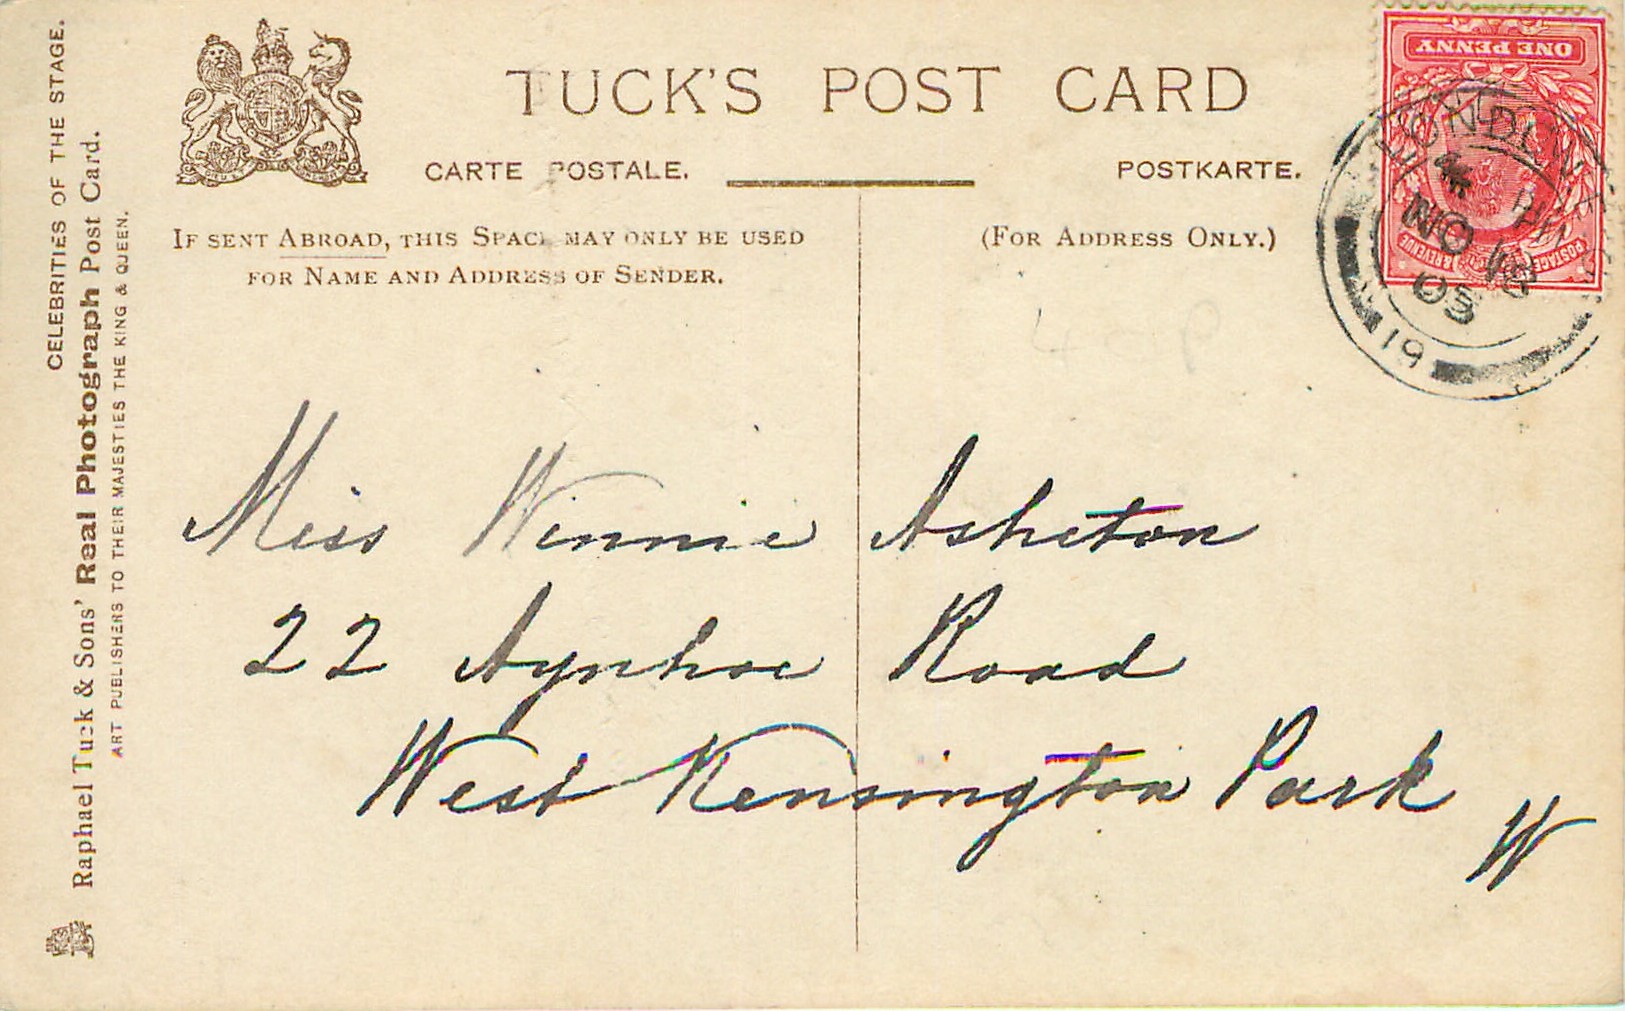 TUCK'S POST CARD
CARTE POSTALE.
POSTKARTE.
IF SENT ABROAD, THIS SPACE MAY ONLY BE USED
FOR NAME AND ADDRESS OF SENDER.
(FOR ADDRESS ONLY.)
CELEBRITIES OF THE STAGE.
Raphael Tuck & Sons' Real Photograph Post Card.
ART PUBLISHERS TO THEIR MAJESTIES THE KING & QUEEN.
ONE PENNY
POSTAGE & REVENUE
LONDON
NO 16
05
19
Miss Winnie Asheton
22 Aynhoe Road
West Kensington Park
W